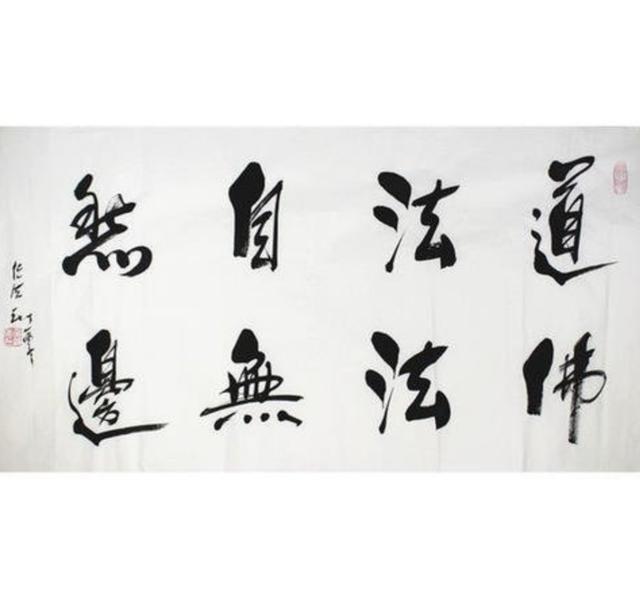 道法自然
佛法無邊